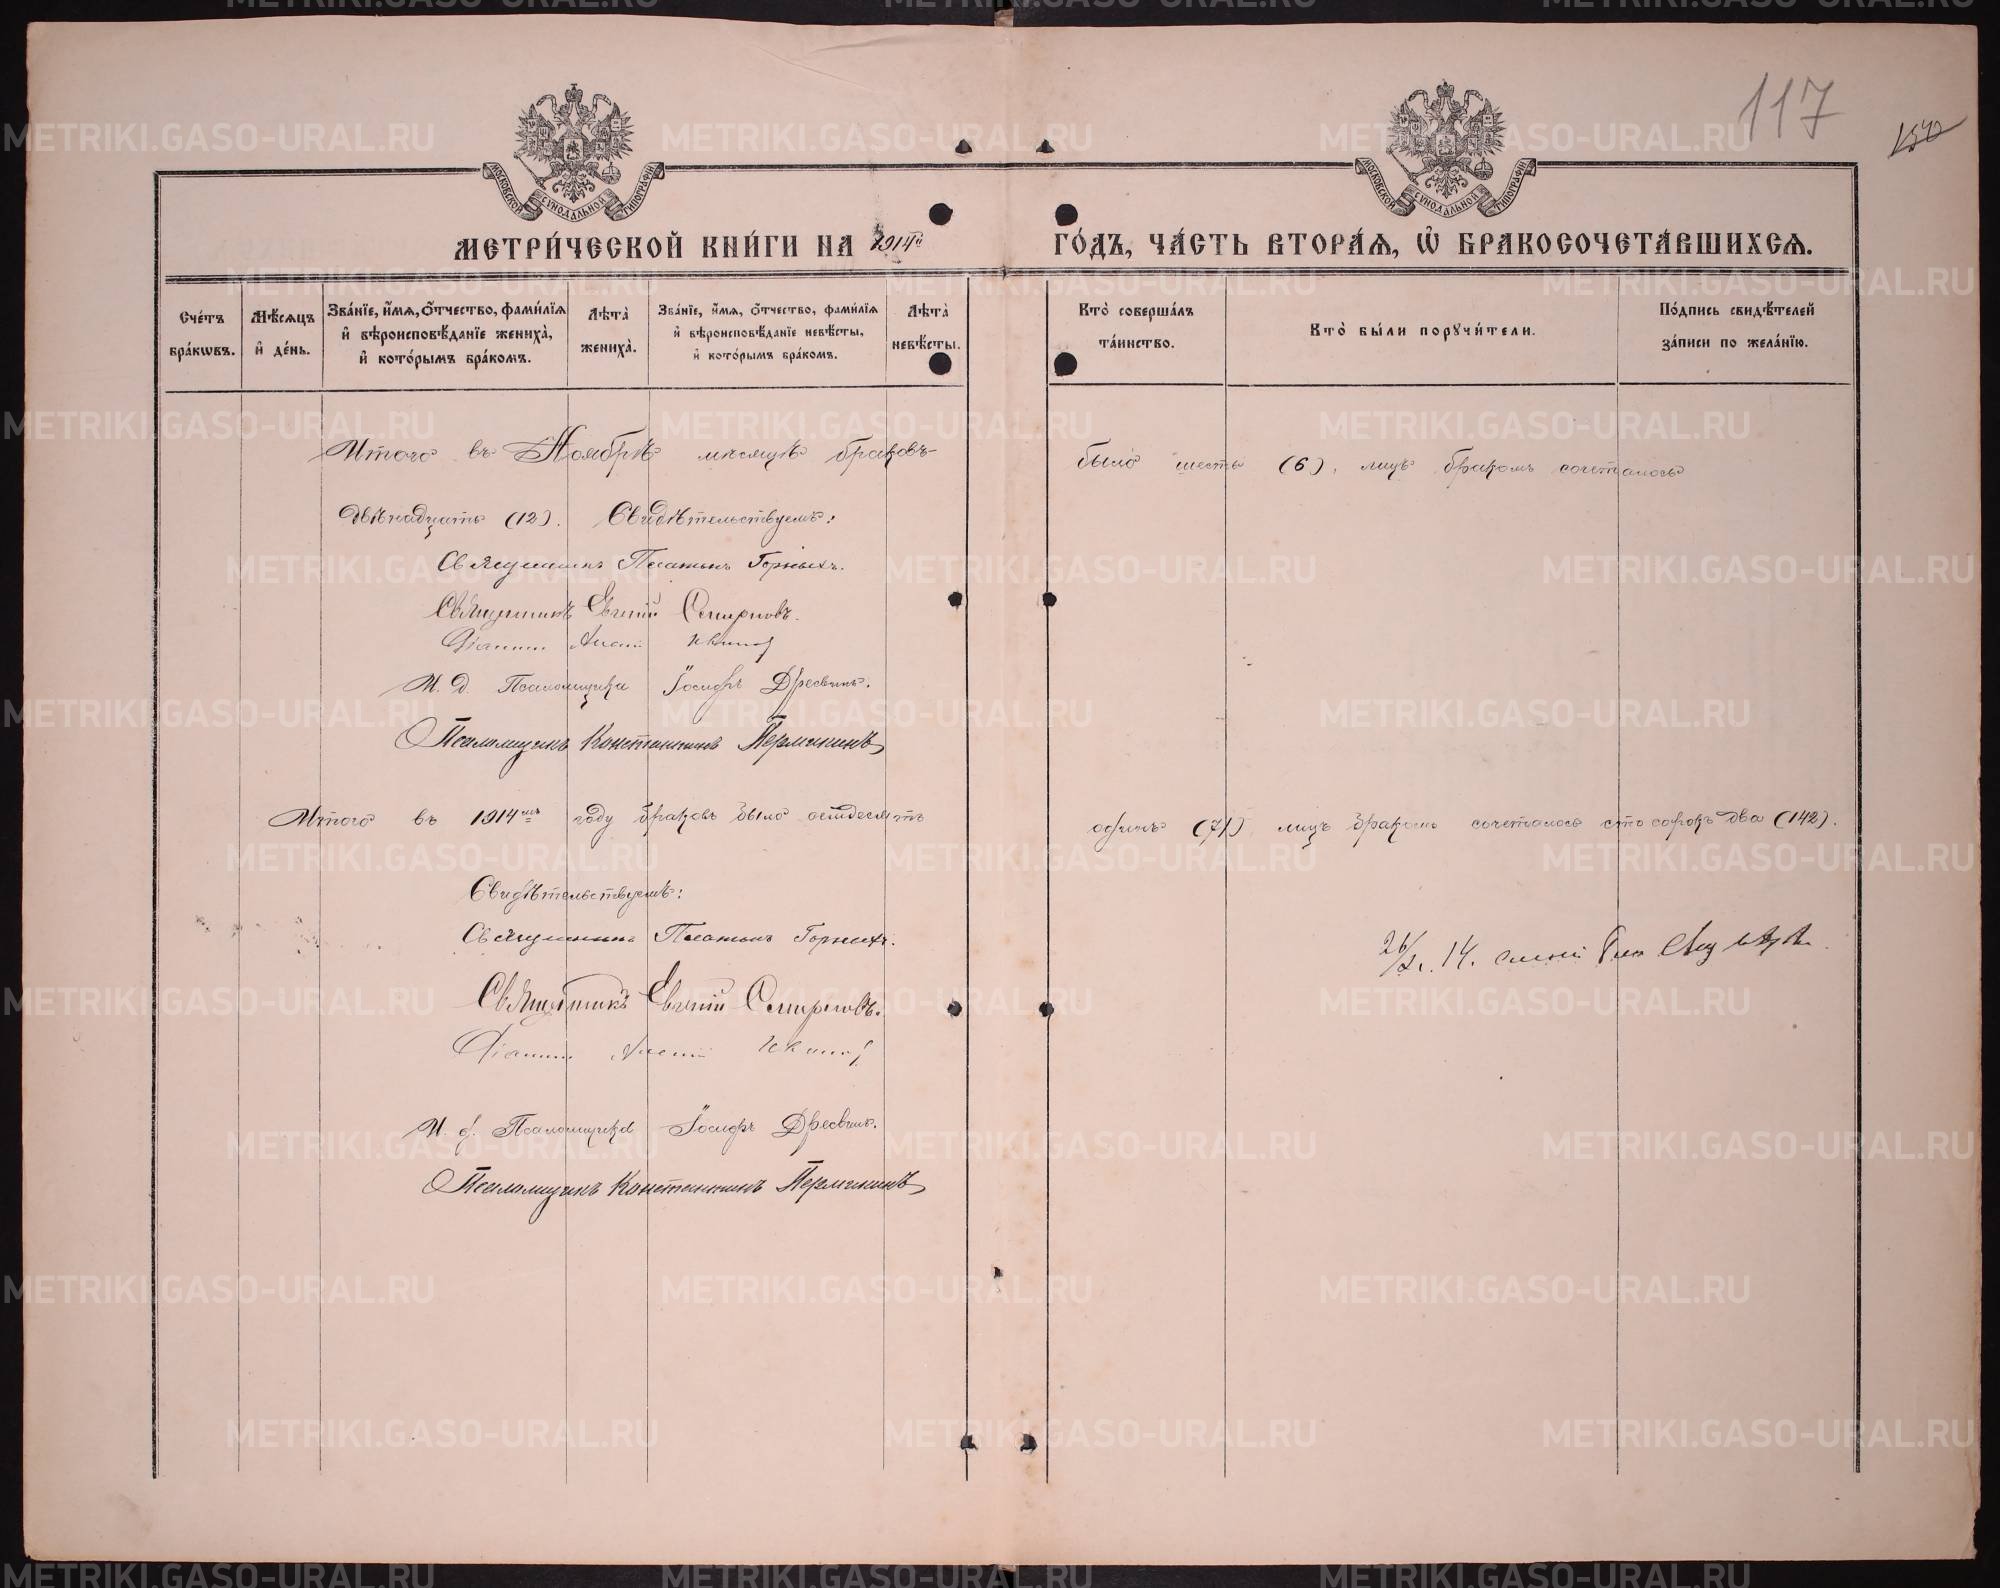 117
МЕТРИ́ЧЕСКОЙ КНИ́ГИ НА 1914й ГО́ДЪ, ЧА́СТЬ ВТОРА́Я, Ѡ БРАКОСОЧЕТА́ВШИХСЯ.
МОСКОВСКОЙ СУНОДАЛЬНОЙ ТИПОГРАФІИ
МОСКОВСКОЙ СУНОДАЛЬНОЙ ТИПОГРАФІИ
Сче́тъ бра́кѡвъ.
Мѣ́сяцъ и҆ де́нь.
Зва́нїе, и҆́мя, ѻ҆́тчество, фами́лїя и҆ вѣроисповѣ́данїе жениха̀, и҆ кото́рымъ бра́комъ.
Лѣ́та̀ жениха̀.
Зва́нїе, и҆́мя, ѻ҆́тчество, фами́лїя и҆ вѣроисповѣ́данїе невѣ́сты, и҆ кото́рымъ бра́комъ.
Лѣ́та̀ невѣ́сты.
Кто̀ соверша́лъ та́инство.
Кто̀ бы́ли порꙋчи́тели.
По́дпись свидѣ́телей за́писи по жела́нїю.
Итого въ Ноябрѣ мѣсяцѣ браковъ было шесть (6), лицъ бракомъ сочеталось
двѣнадцать (12). Свидѣтельствуемъ:
Священникъ Платонъ Горныхъ.
Священникъ Евгеній Смирновъ.
Діаконъ
И. д. Псаломщика Іосифъ Дресвинъ.
Псаломщикъ Константинъ Пермикинъ
Итого въ 1914мъ году браковъ было семдесятъ одинъ (71) лицъ бракомъ сочеталось сто сорокъ два (142).
Свидѣтельствуемъ:
Священникъ Платонъ Горныхъ.
14.
Священникъ Евгеній Смирновъ.
Діаконъ
И. д. Псаломщика Іосифъ Дресвинъ.
Псаломщикъ Константинъ Пермикинъ
METRIKI.GASO-URAL.RU